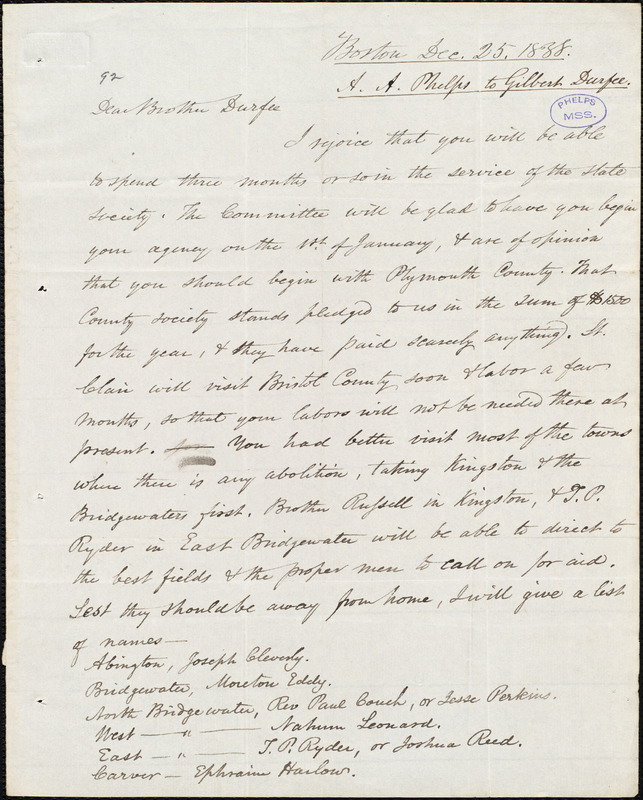 Boston Dec. 25. 1838.
92
A. A. Phelps to Gilbert Durfee.
PHELPS
MSS.
Dear Brother Durfee
I rejoice that you will be able
to spend three months or so in the service of the state
society. The Committee will be glad to have you begin
your agency on the 1st of January, & are of opinion
that you should begin with Plymouth County. That
County society stands pledged to us in the sum of $1500
for the year, & they have paid scarcely anything. St.
Clair will visit Bristol County soon & labor a few
months, so that your labors will not be needed there at
present. — You had better visit most of the towns
where there is any abolition, taking Kingston & the
Bridgewaters first. Brother Russell in Kingston, & T. P.
Ryder in East Bridgewater will be able to direct to
the best fields & the proper men to call on for aid.
Lest they should be away from home, I will give a list
of names—
Abington, Joseph Cleverly.
Bridgewater, Moreton Eddy.
North Bridgewater, Rev Paul Couch, or Jesse Perkins.
West — " — Nahum Leonard.
East — " — T. P. Ryder, or Joshua Reed.
Carver — Ephraim Harlow.